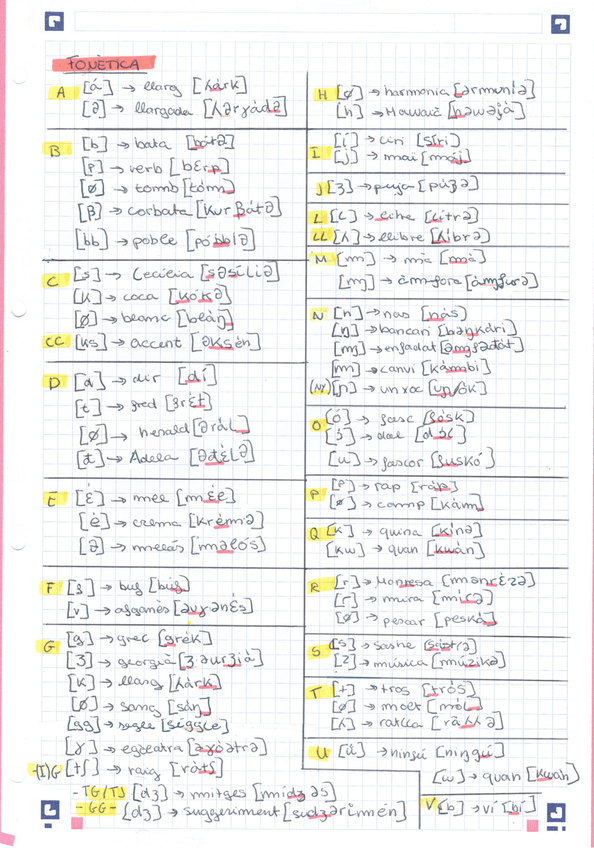 FONÈTICA
A [á] → llarg [ʎárk]
[ə] → llargada [ʎərɣáðə]
B [b] → bata [bátə]
[p] → verb [bɛ́rp]
[ø] → tomb [tóm]
[β] → corbata [kurβátə]
[bb] → poble [póbblə]
C [s] → Cecília [səsíliə]
[k] → coca [kókə]
[ø] → blanc [bláŋ]
CC [ks] → accent [əksén]
D [d] → dir [dí]
[t] → fred [frɛ́t]
[ø] → herald [ərál]
[đ] → Adela [əđɛ́lə]
E [ɛ́] → mel [mɛ́l]
[é] → crema [krémə]
[ə] → melós [məlós]
F [f] → buf [búf]
[v] → afganès [əvgənɛ́s]
G [g] → grec [grék]
[ʒ] → geòrgia [ʒəurʒiá]
[k] → llarg [ʎárk]
[ø] → sang [sáŋ]
[gg] → segle [séggle]
[ɣ] → egleatra [əɣóətrə]
-(I)G [tʃ] → raig [rátʃ]
-TG/TJ [dʒ] → mitges [mídʒəs]
-GG- [dʒ] → suggeriment [sudʒərimén]
H [ø] → harmonia [ərmuníə]
[h] → Hawaii [həwájə]
I [í] → ciri [síri]
[j] → mai [máj]
J [ʒ] → puja [púʒə]
L [L] → litre [lítrə]
LL [ʎ] → llibre [ʎíbrə]
M [m] → mà [má]
[ɱ] → àmfora [áɱfurə]
N [n] → nas [nás]
[ŋ] → bancari [bəŋkári]
[ɱ] → enfadat [əɱfədát]
[m] → canvi [kámbi]
(NY) [ɲ] → un xoc
O [ó] → fosc [fósk]
[ɔ́] → dol [dɔ́l]
[u] → foscor [fuskó]
P [p] → rap [ráp]
[ø] → camp [kám]
Q [k] → quina [kínə]
[kw] → quan [kwán]
R [r] → Monresa [mənrɛ́zə]
[ɾ] → mira [míɾə]
[ø] → pescar [peská]
S [s] → sastre [sástrə]
[z] → música [múzikə]
T [t] → tros [trós]
[ø] → molt [mól]
[ʎ] → ratlla [ráʎʎə]
U [ú] → ningú [ningú]
[w] → quan [kwán]
V [b] → vi [bí]